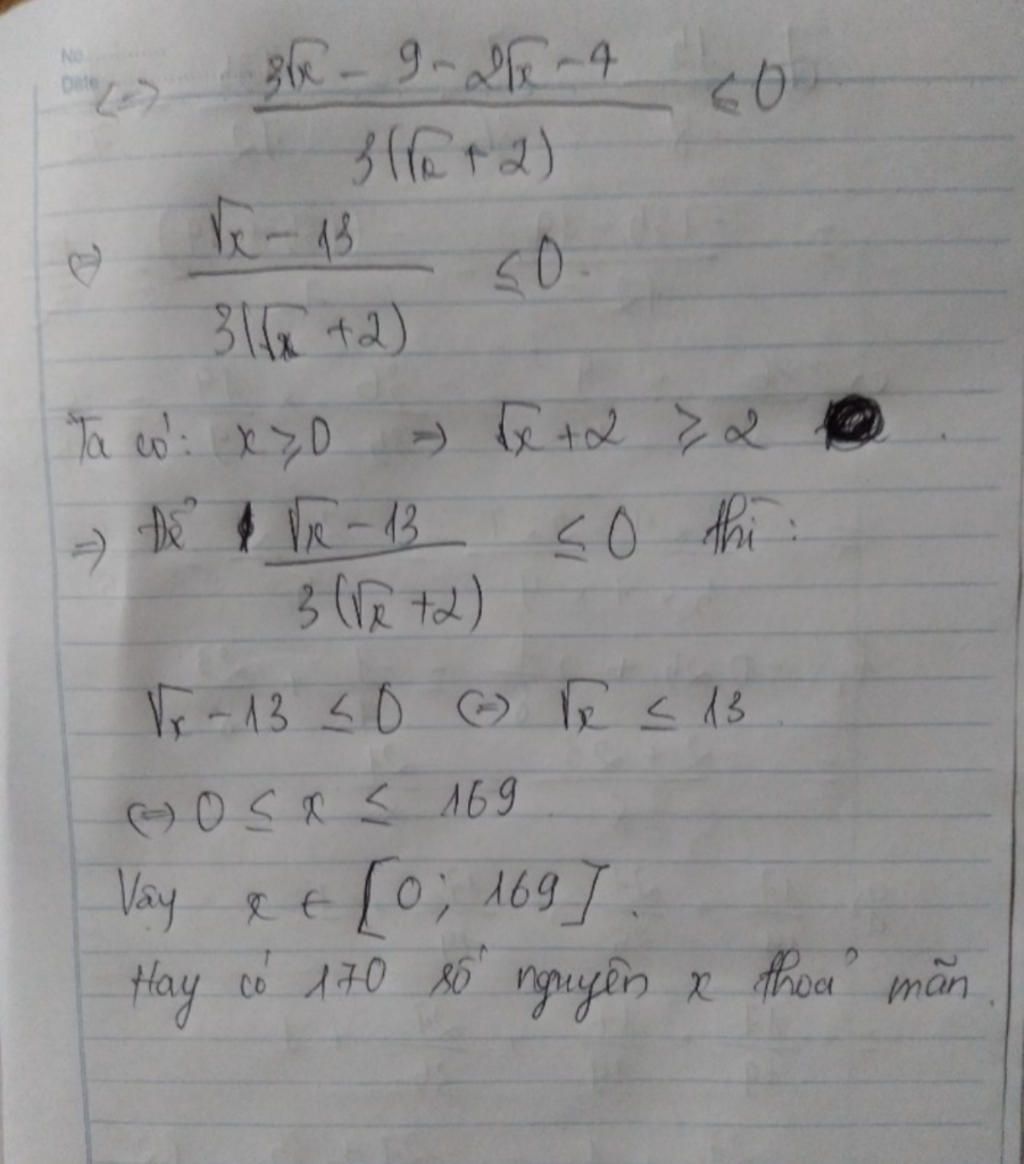 No.
Date
<=> (3√x - 9 - 2√x - 4) / (3(√x + 2)) ≤ 0
<=> (√x - 13) / (3(√x + 2)) ≤ 0.
Ta có: x ≥ 0 => √x + 2 ≥ 2 .
=> Để (√x - 13) / (3(√x + 2)) ≤ 0 thì:
√x - 13 ≤ 0 <=> √x ≤ 13
<=> 0 ≤ x ≤ 169
Vậy x ∈ [0; 169].
Hay có 170 số nguyên x thoả mãn.